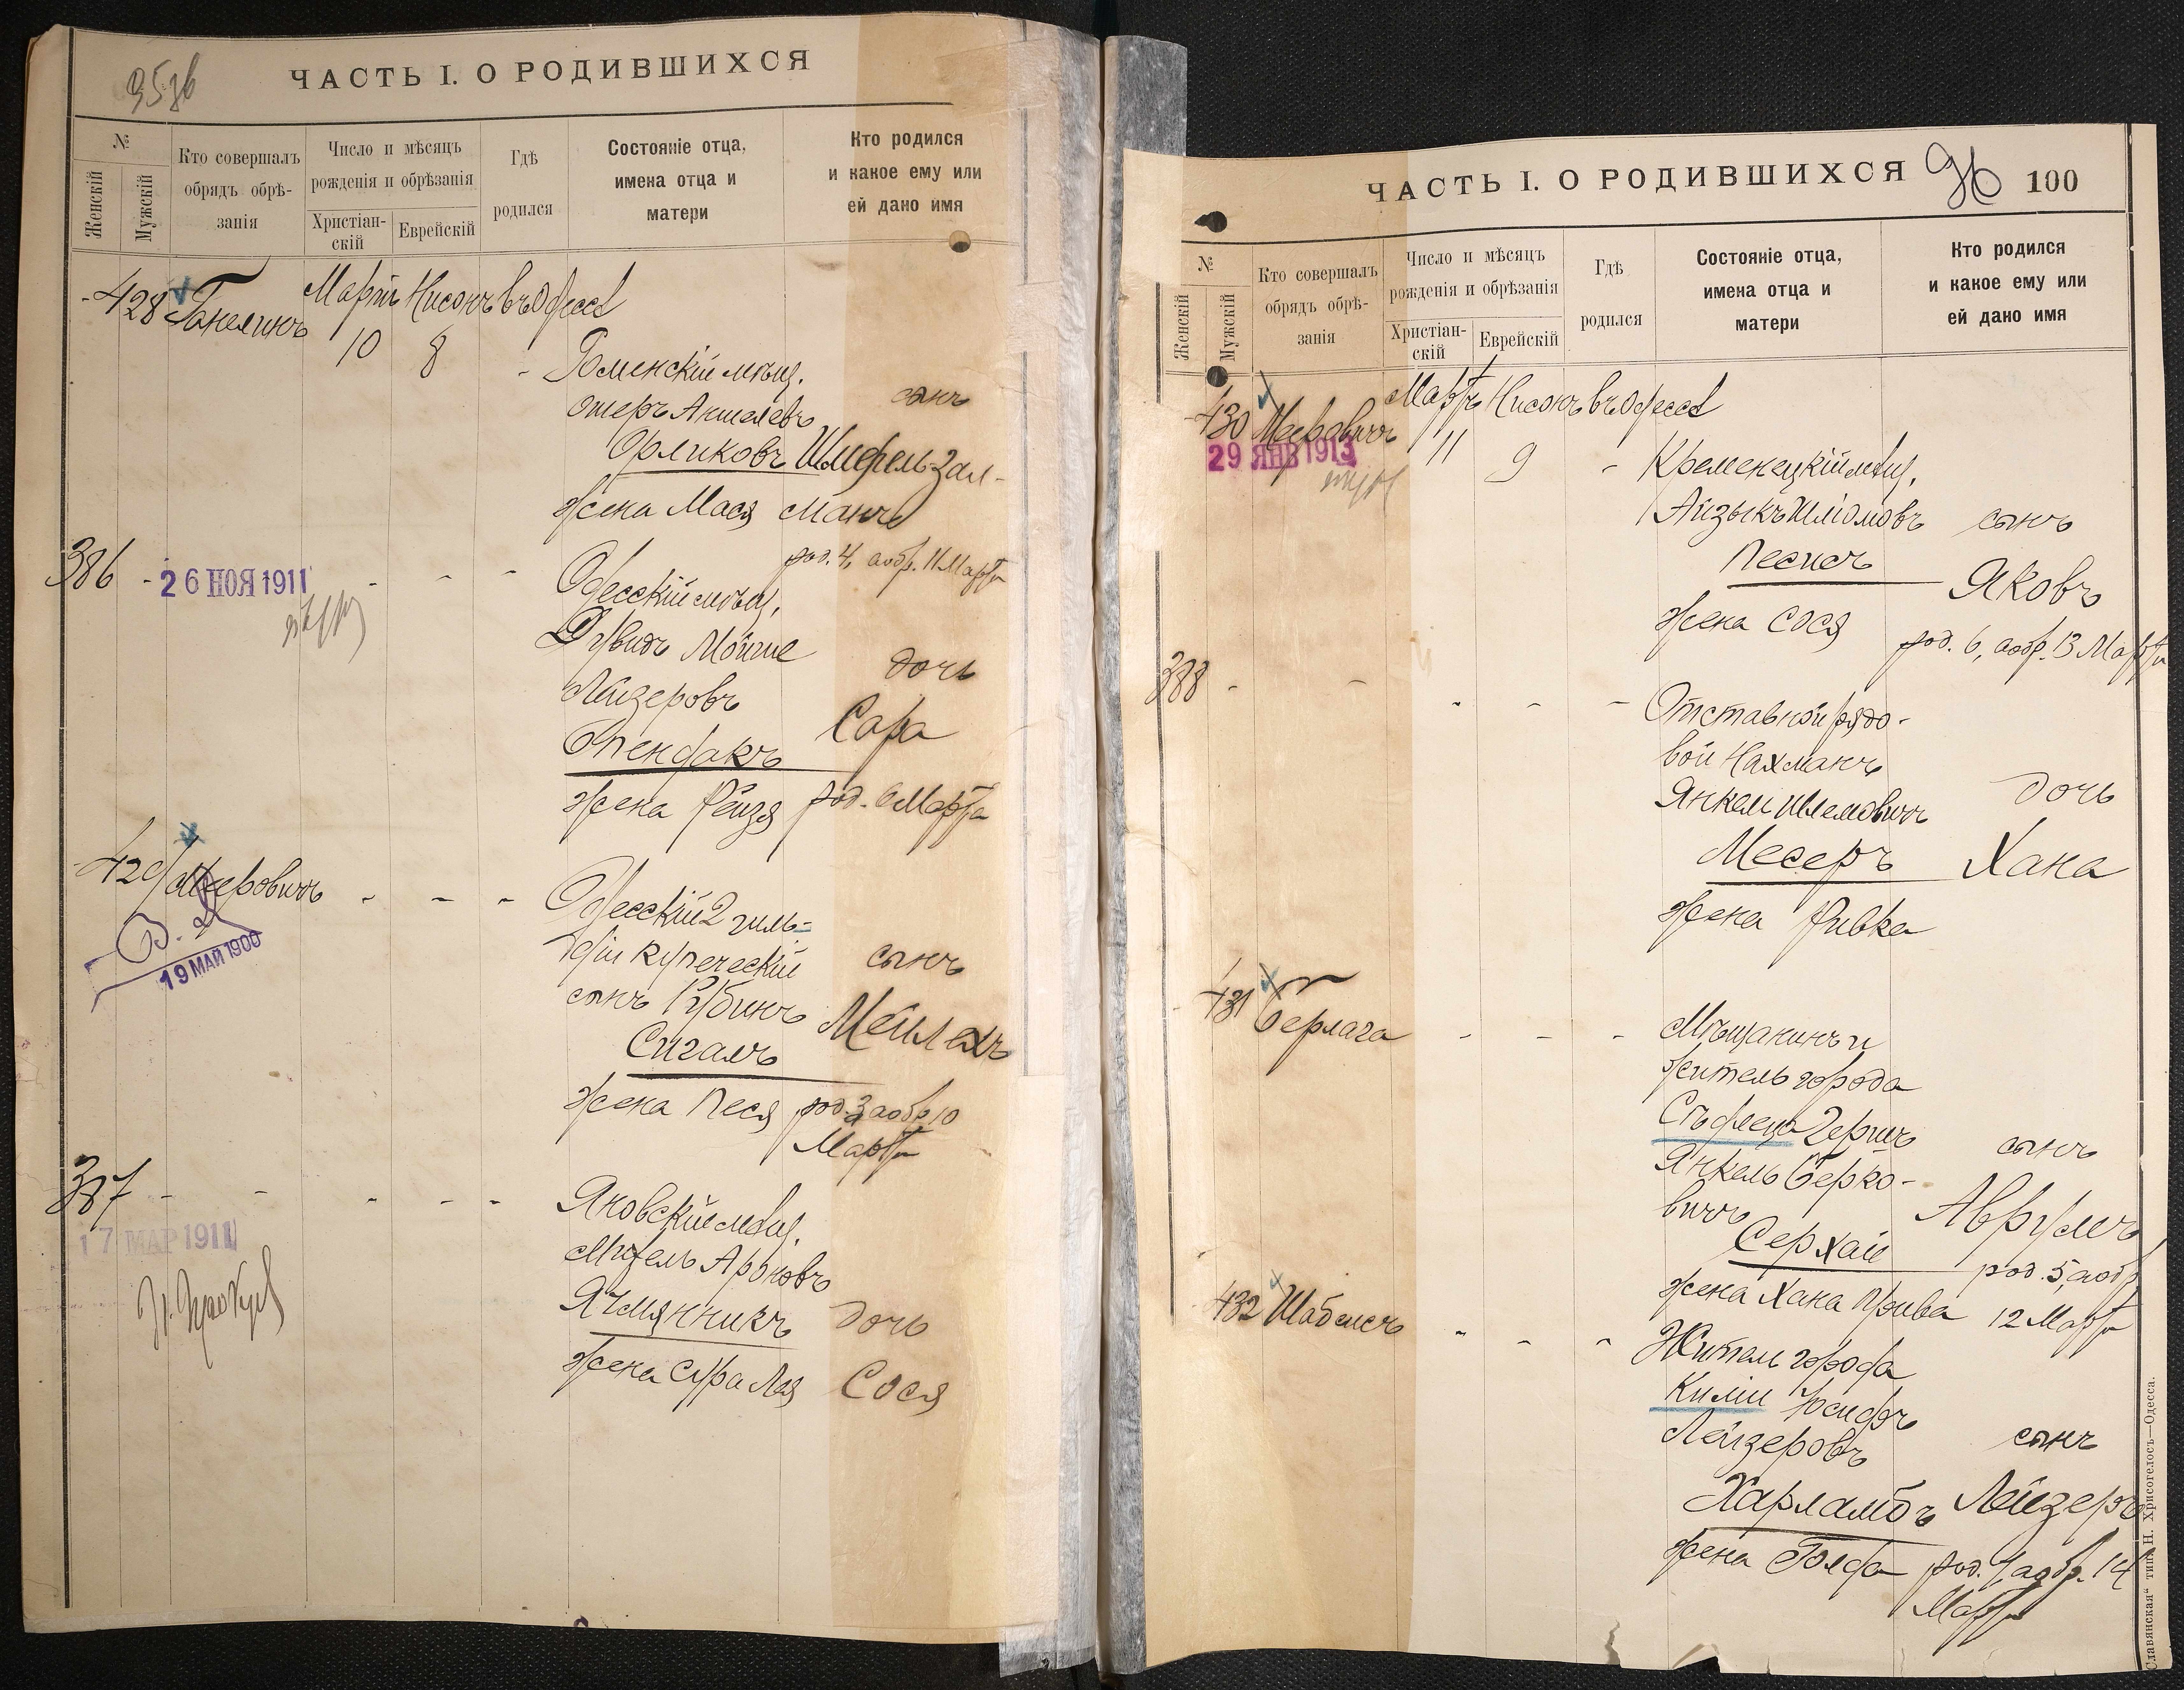 ЧАСТЬ I. О РОДИВШИХСЯ
№
Женскій
Мужскій
Кто совершалъ
обрядъ обрѣ-
занія
Число и мѣсяцъ
рожденія и обрѣзанія
Христіан-
скій
Еврейскій
Гдѣ
родился
Состояніе отца,
имена отца и
матери
Кто родился
и какое ему или
ей дано имя
428 Ганелинъ
Мартъ Нисонъ въ Одессѣ
10 8 -
Роменскій мѣщ.
Омеръ Аншелевъ
Орликовъ
жена Мася
сынъ
Шмерель Зал-
манъ
род. 4, а обр. 11 Марта
386 -
26 НОЯ 1911
- - -
Одесскій мѣщ.
Дувидъ Мойше
Лейзеровъ
Опендакъ
жена Рейзя
дочь
Сара
род. 6 Марта
429 Меровичъ - - -
19 МАЙ 1900
Одесскій 2 гиль-
діи купеческій
сынъ Рубинъ
Сигалъ
жена Песя
сынъ
Мейлехъ
род. 3 а обр 10
Марта
387 - - - - -
17 МАР 1911
Яновскій мѣщ.
Ароновъ
Ячмянникъ
жена Сура Лея
дочь
Сося
ЧАСТЬ I. О РОДИВШИХСЯ 96 100
№
Женскій
Мужскій
Кто совершалъ
обрядъ обрѣ-
занія
Число и мѣсяцъ
рожденія и обрѣзанія
Христіан-
скій
Еврейскій
Гдѣ
родился
Состояніе отца,
имена отца и
матери
Кто родился
и какое ему или
ей дано имя
430 Меровичъ
Мартъ Нисонъ въ Одессѣ
11 9 -
29 ЯНВ 1913
Кременецкій мѣщ.
Айзыкъ Шліомовъ
Песисъ
жена Сося
сынъ
Яковъ
род. 6, а обр. 13 Марта
388 - - - - -
Отставной рядо-
вой Нахманъ
Янкель Шлемовичъ
Месеръ
жена Ривка
дочь
Хана
431 Берлага - - -
Мѣщанинъ и
житель города
Гершъ
Янкель Берко-
вичъ
Серхай
жена Хана
сынъ
Аврумъ
род. 5, а обр
12 Марта
432 Шабсисъ - - -
Житель города
Киліи Іосифъ
Лейзеровъ
Харламбъ
жена Голда
сынъ
Лейзеръ
а обр. 14
Марта
Славянская" тип. Н. Хрисогелосъ—Одесса.